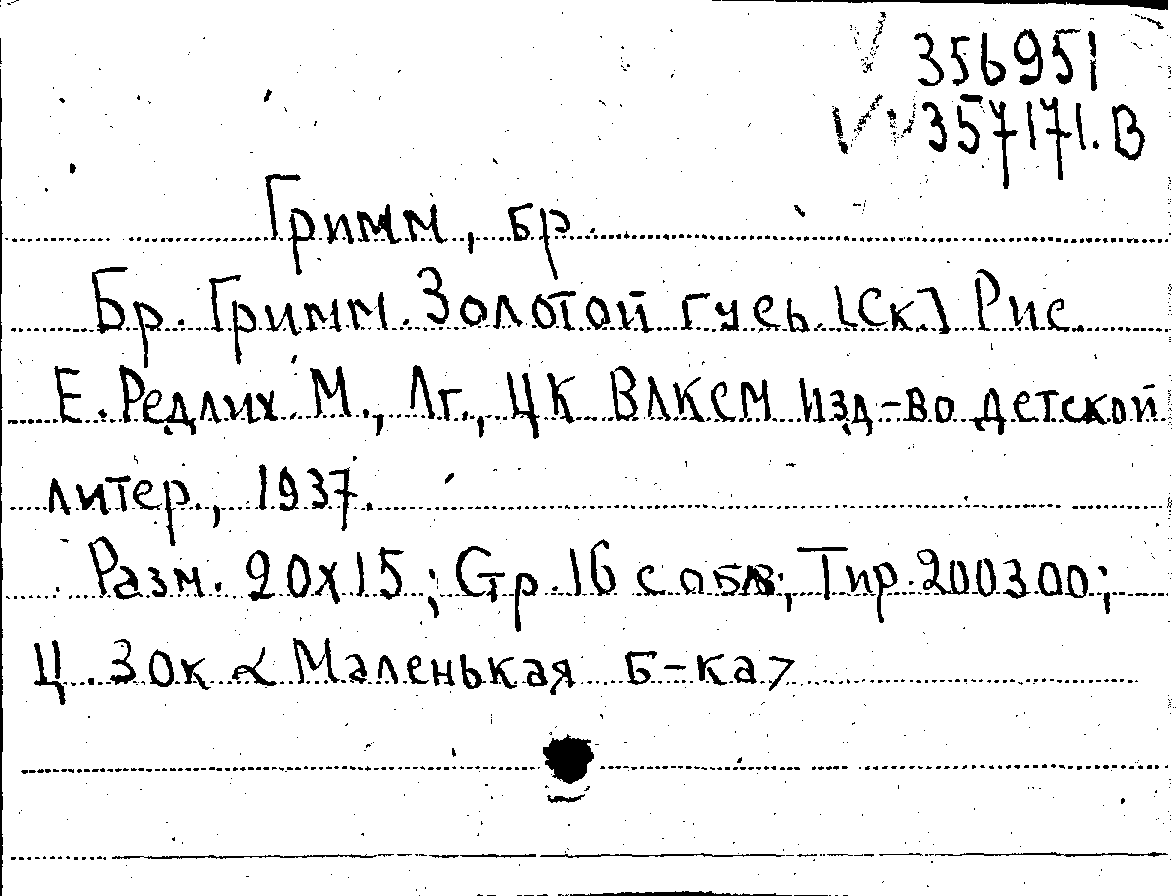 356951
357171.В
Гримм, бр.
Бр. Гримм. Золотой гусь. [Ск.] Рис.
Е. Редлих М., Лг., ЦК ВЛКСМ Изд-во детской
литер., 1937.
Разм. 20х15; Стр. 16 с обл; Тир. 200300;
Ц. 30к <Маленькая б-ка>